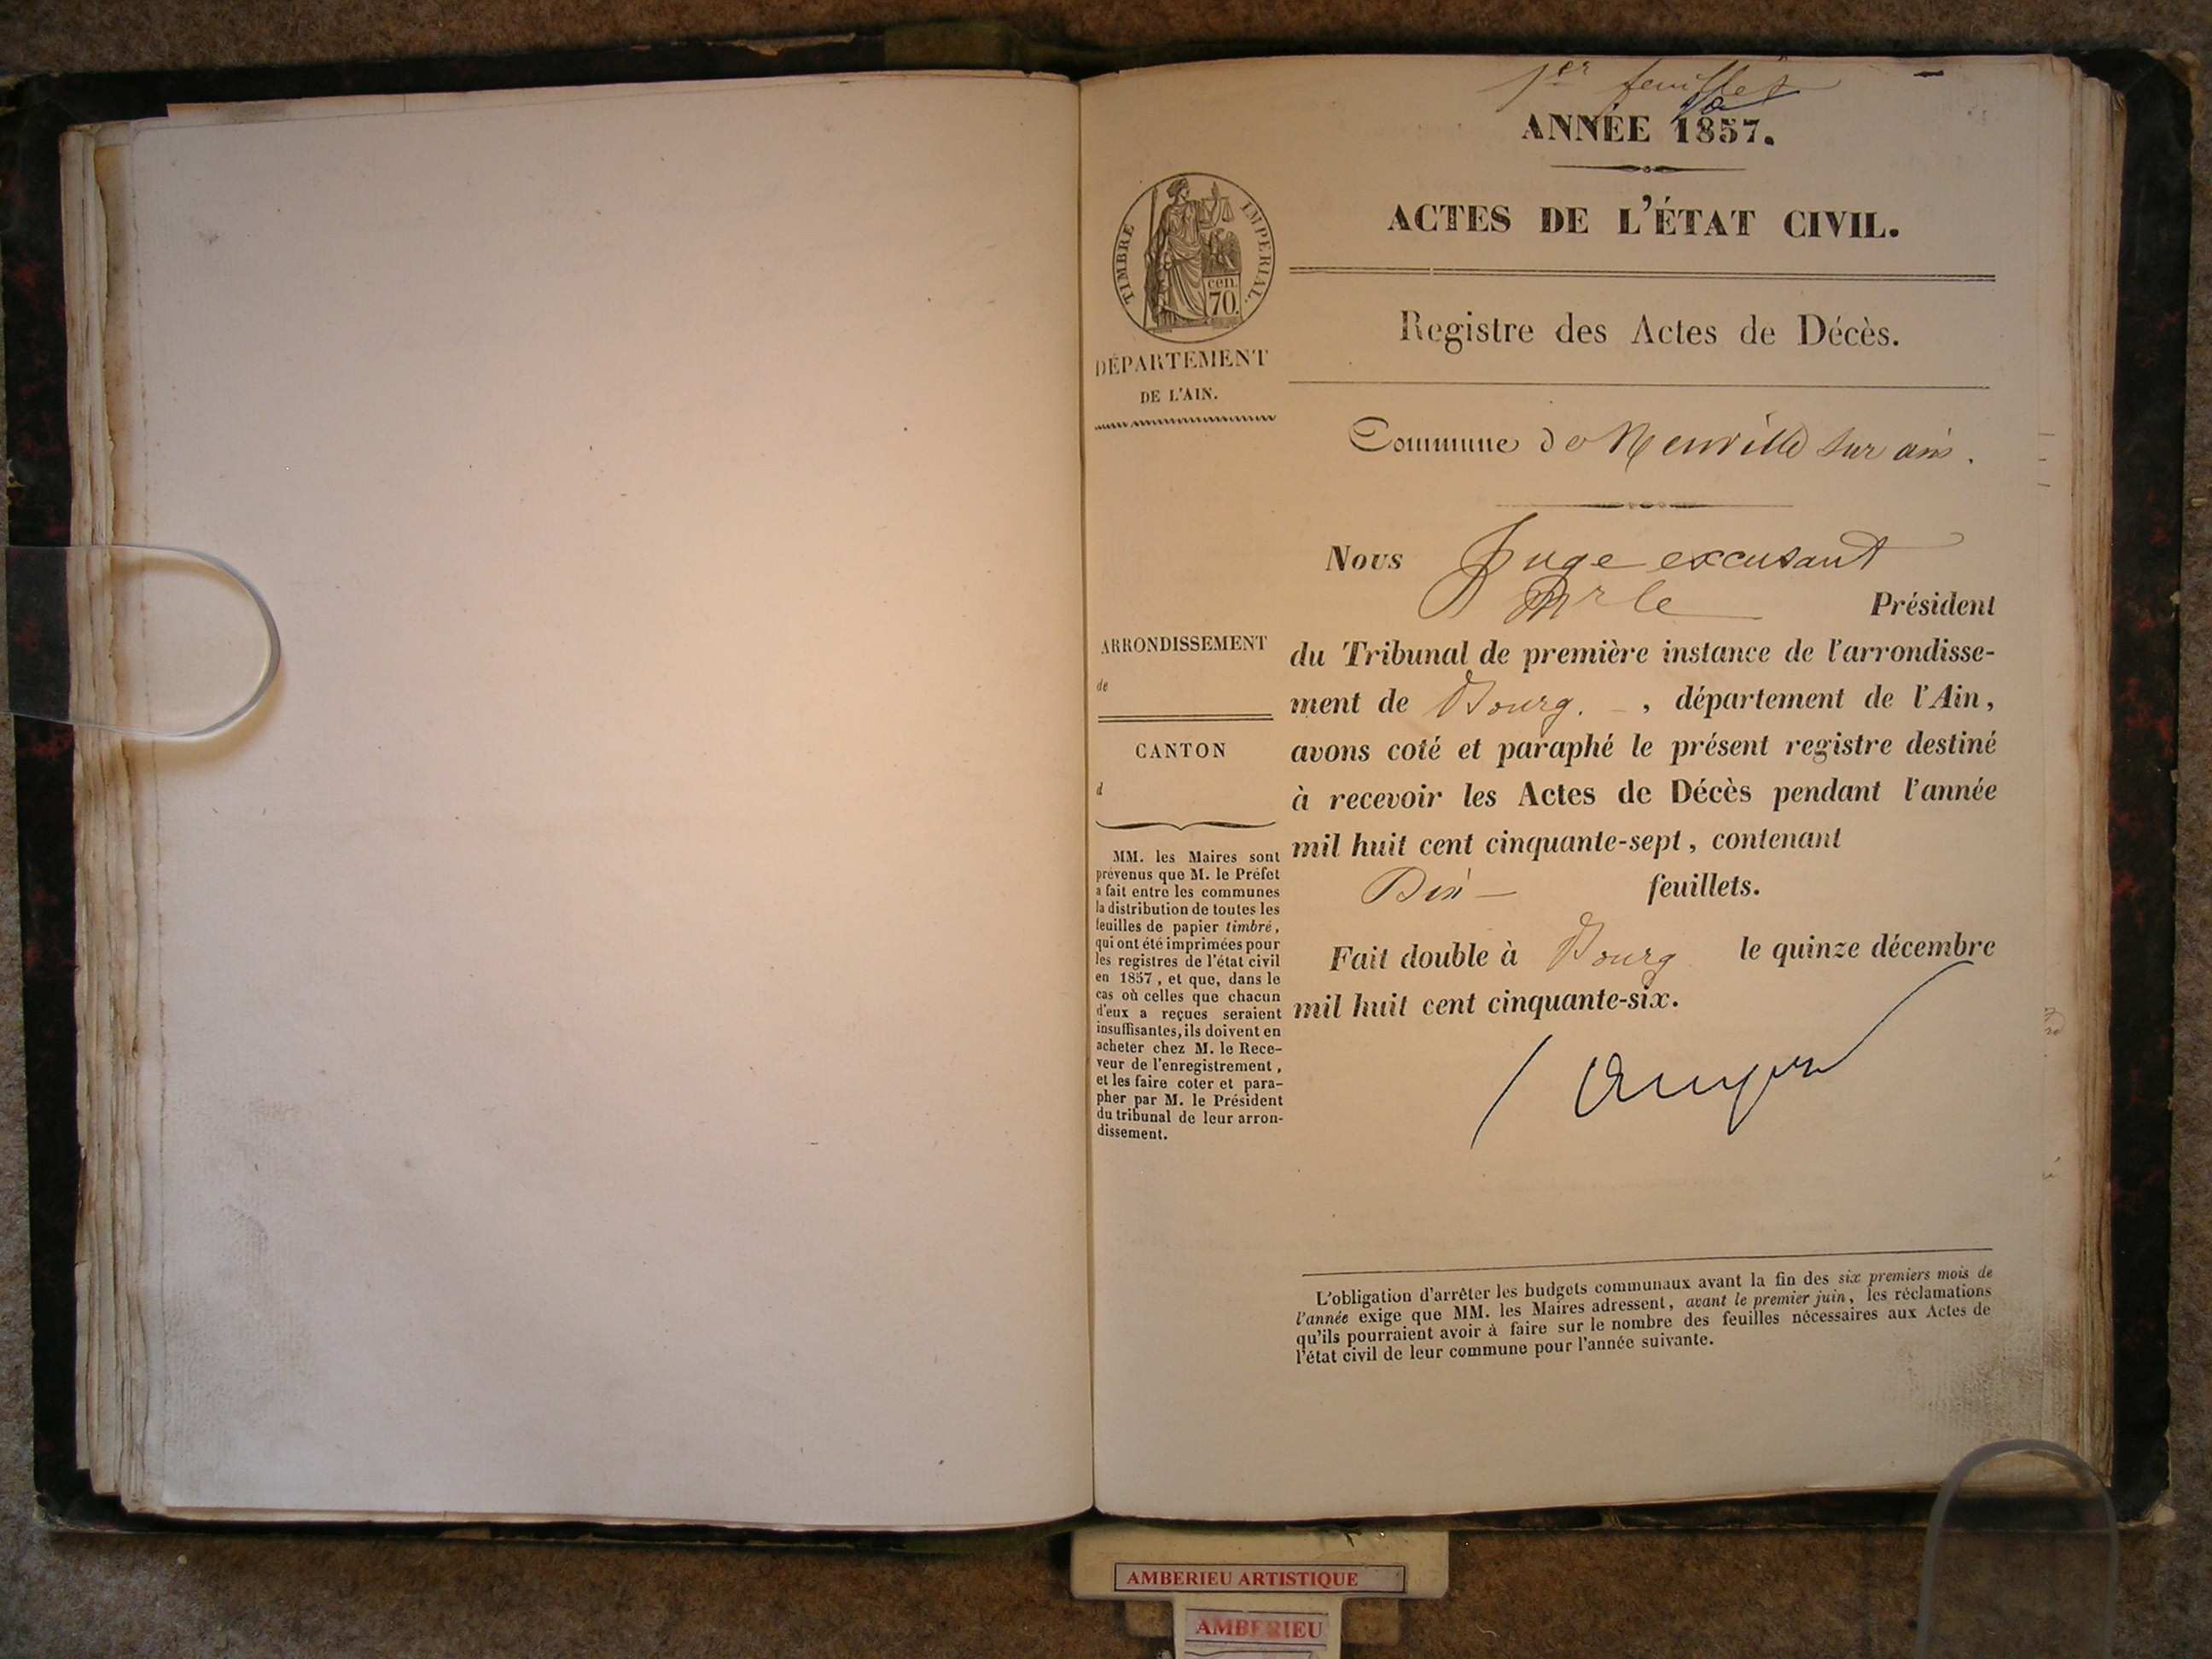 1er feuillet
ANNÉE 1857.
ACTES DE L'ÉTAT CIVIL.
TIMBRE IMPÉRIAL.
cen.
70.
DÉPARTEMENT
DE L'AIN.
Registre des Actes de Décès.
Commune de Neuville sur ain.
Nous Juge excusant
Mr le Président
du Tribunal de première instance de l'arrondisse-
ment de Bourg. , département de l'Ain,
avons coté et paraphé le présent registre destiné
à recevoir les Actes de Décès pendant l'année
mil huit cent cinquante-sept, contenant
Dix feuillets.
Fait double à Bourg le quinze décembre
mil huit cent cinquante-six.
ARRONDISSEMENT
de
CANTON
d
MM. les Maires sont
prévenus que M. le Préfet
a fait entre les communes
la distribution de toutes les
feuilles de papier timbré,
qui ont été imprimées pour
les registres de l'état civil
en 1857, et que, dans le
cas où celles que chacun
d'eux a reçues seraient
insuffisantes, ils doivent en
acheter chez M. le Rece-
veur de l'enregistrement,
et les faire coter et para-
pher par M. le Président
du tribunal de leur arron-
dissement.
L'obligation d'arrêter les budgets communaux avant la fin des six premiers mois de
l'année exige que MM. les Maires adressent, avant le premier juin, les réclamations
qu'ils pourraient avoir à faire sur le nombre des feuilles nécessaires aux Actes de
l'état civil de leur commune pour l'année suivante.
AMBERIEU ARTISTIQUE
AMBERIEU